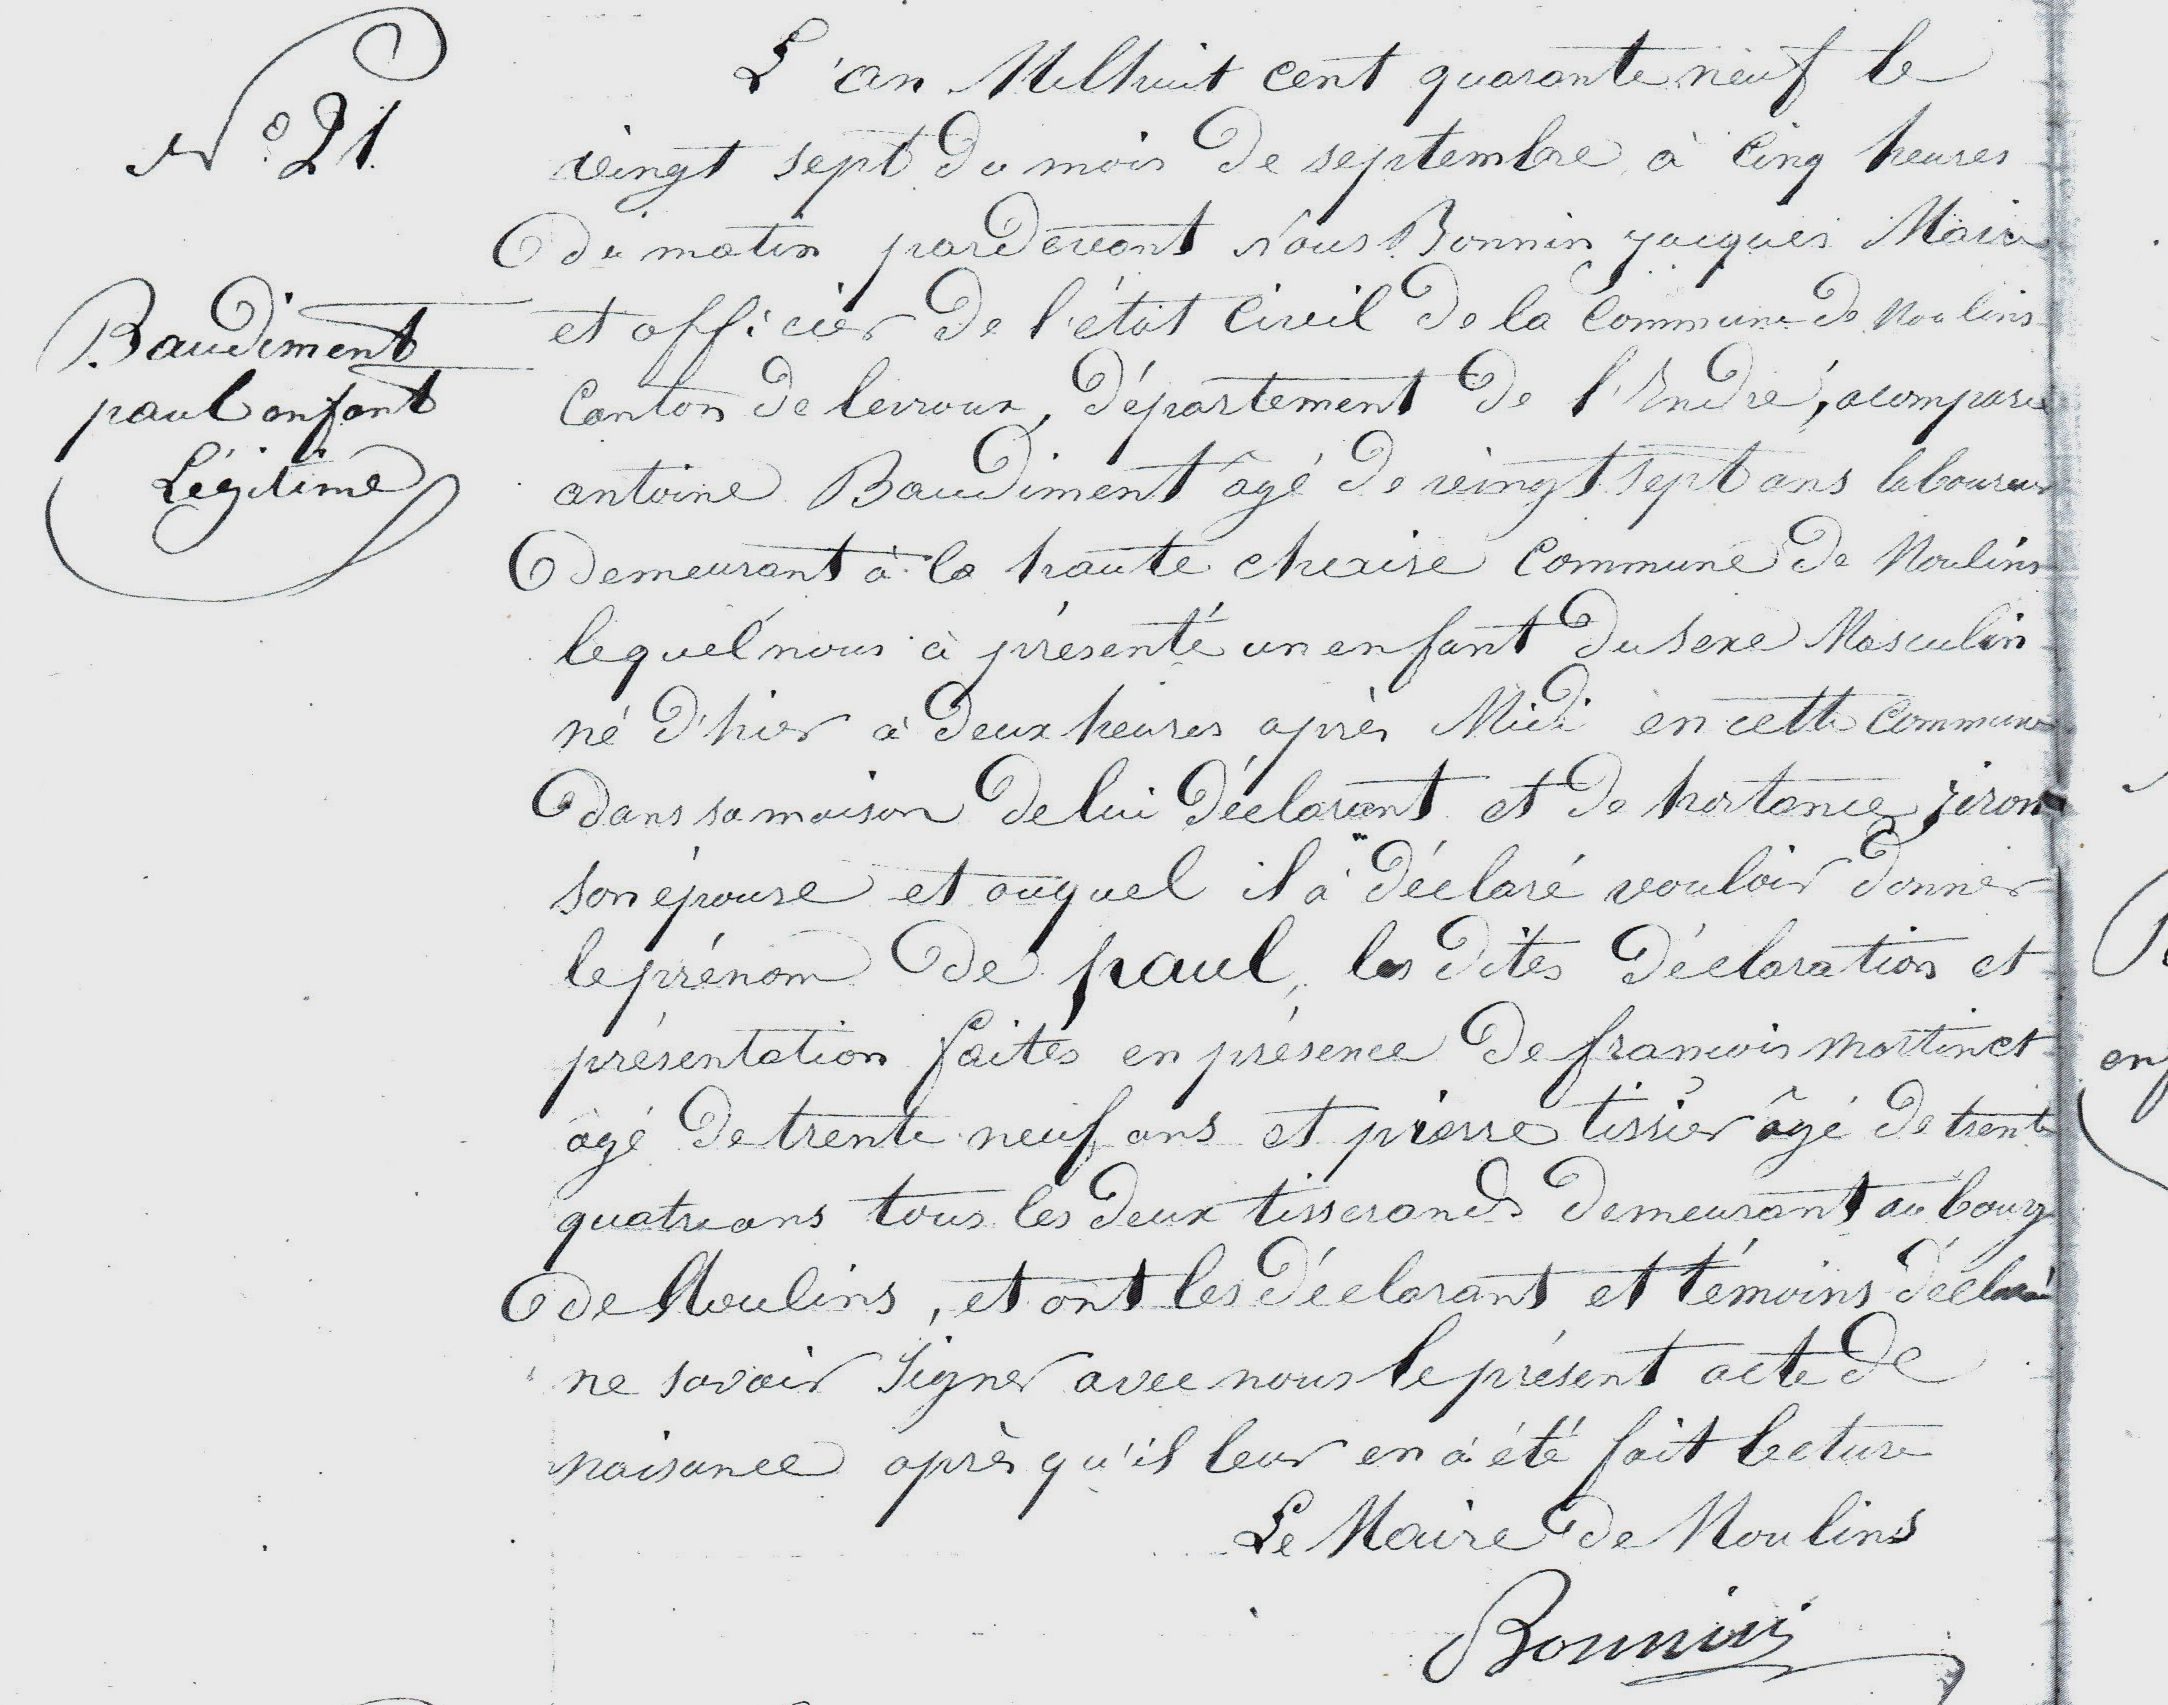 N° 21.
Baudiment
paul enfant
Légitime
L'an Mil huit cent quarante neuf le
vingt sept du mois de septembre à Cinq heures
du matin pardevant Nous Bonnin jacques Maire
et officier de l'état Civil de la Commune de Moulins
Canton de levroux, département de l'Indre, acomparu
antoine Baudiment âgé de vingt sept ans laboureur
demeurant à la haute Commune de Moulins
lequel nous à présenté un enfant du sexe Masculin
né d'hier à deux heures après Midi en cette Commune
dans sa maison de lui déclarant et de hortance
son épouse et auquel il à déclaré vouloir donner
le prénom de paul, les dites déclaration et
présentation faites en présence de francois martinet
âgé de trente neuf ans et pierre tissier âgé de trente
quatre ans tous les deux tisserands demeurant au bourg
de Moulins, et ont les déclarant et témoins déclaré
ne savoir Signer avec nous le présent acte de
naisance après qu'il leur en à été fait lecture
Le Maire de Moulins
Bonnin